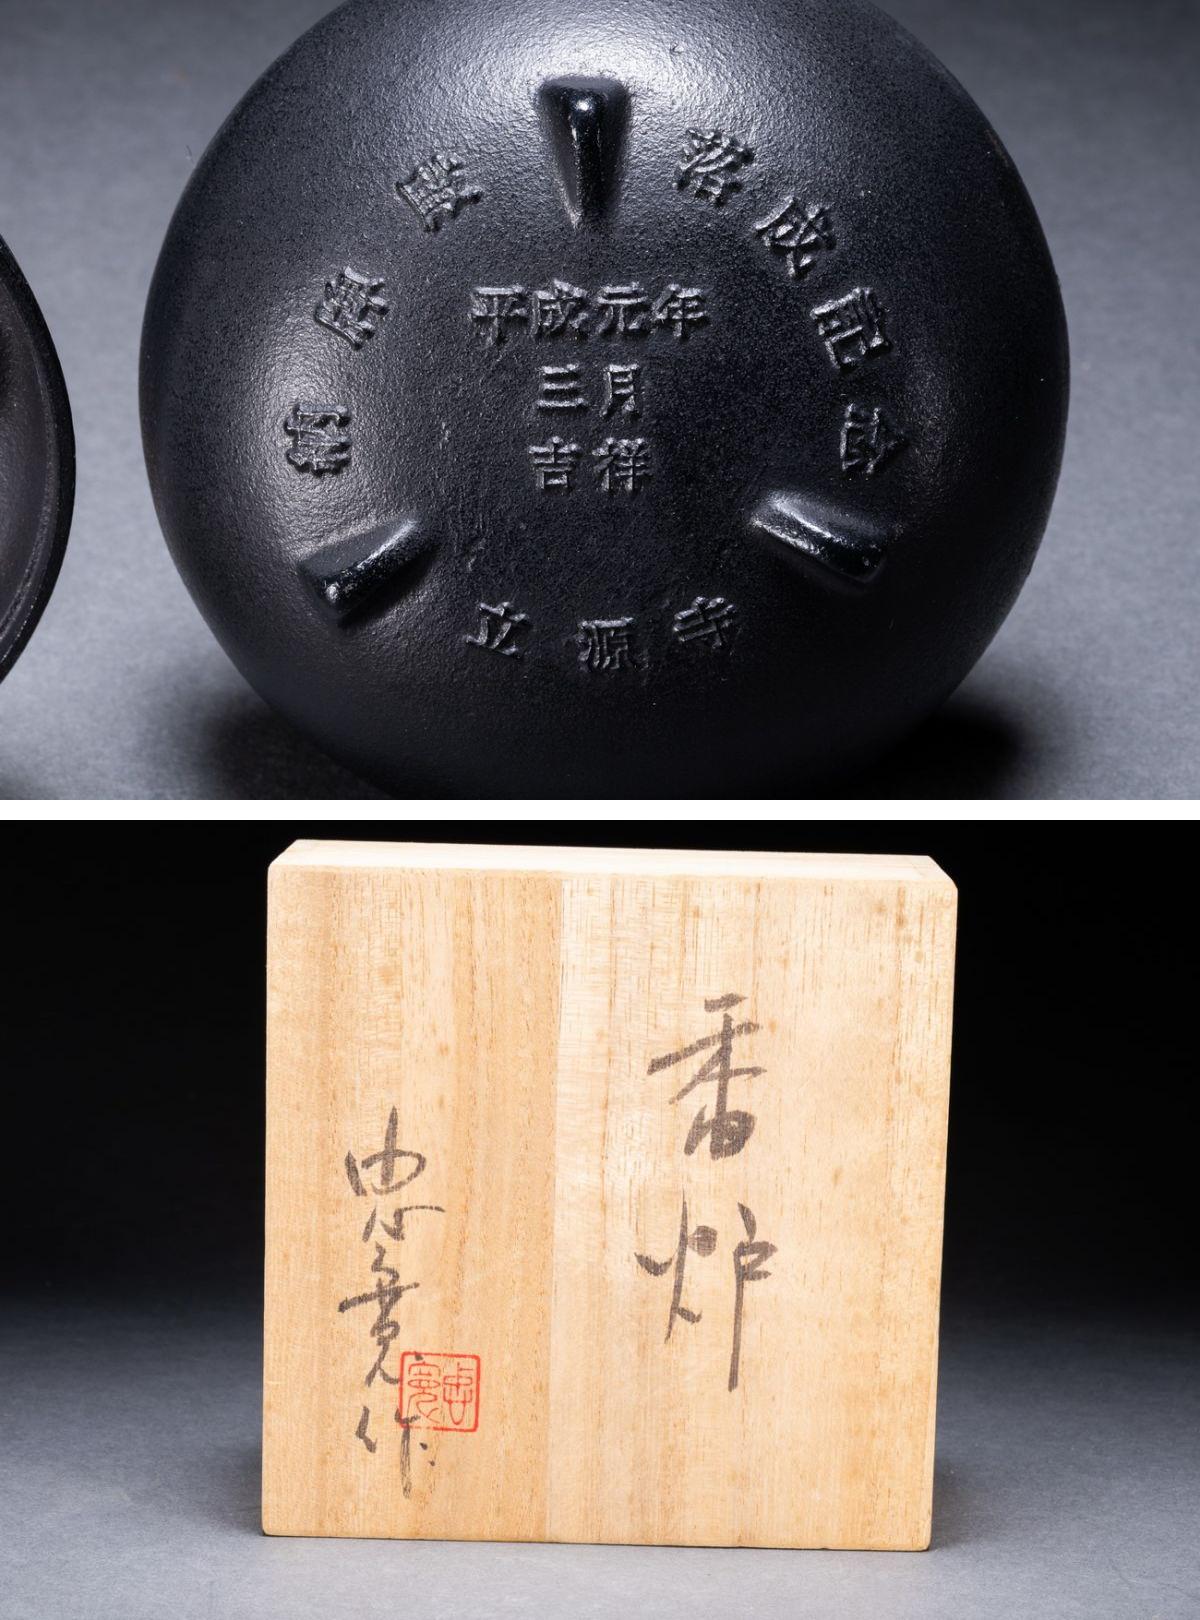 落成記念
平成元年
三月
吉祥
立源寺
香炉
忠寛作
忠寛